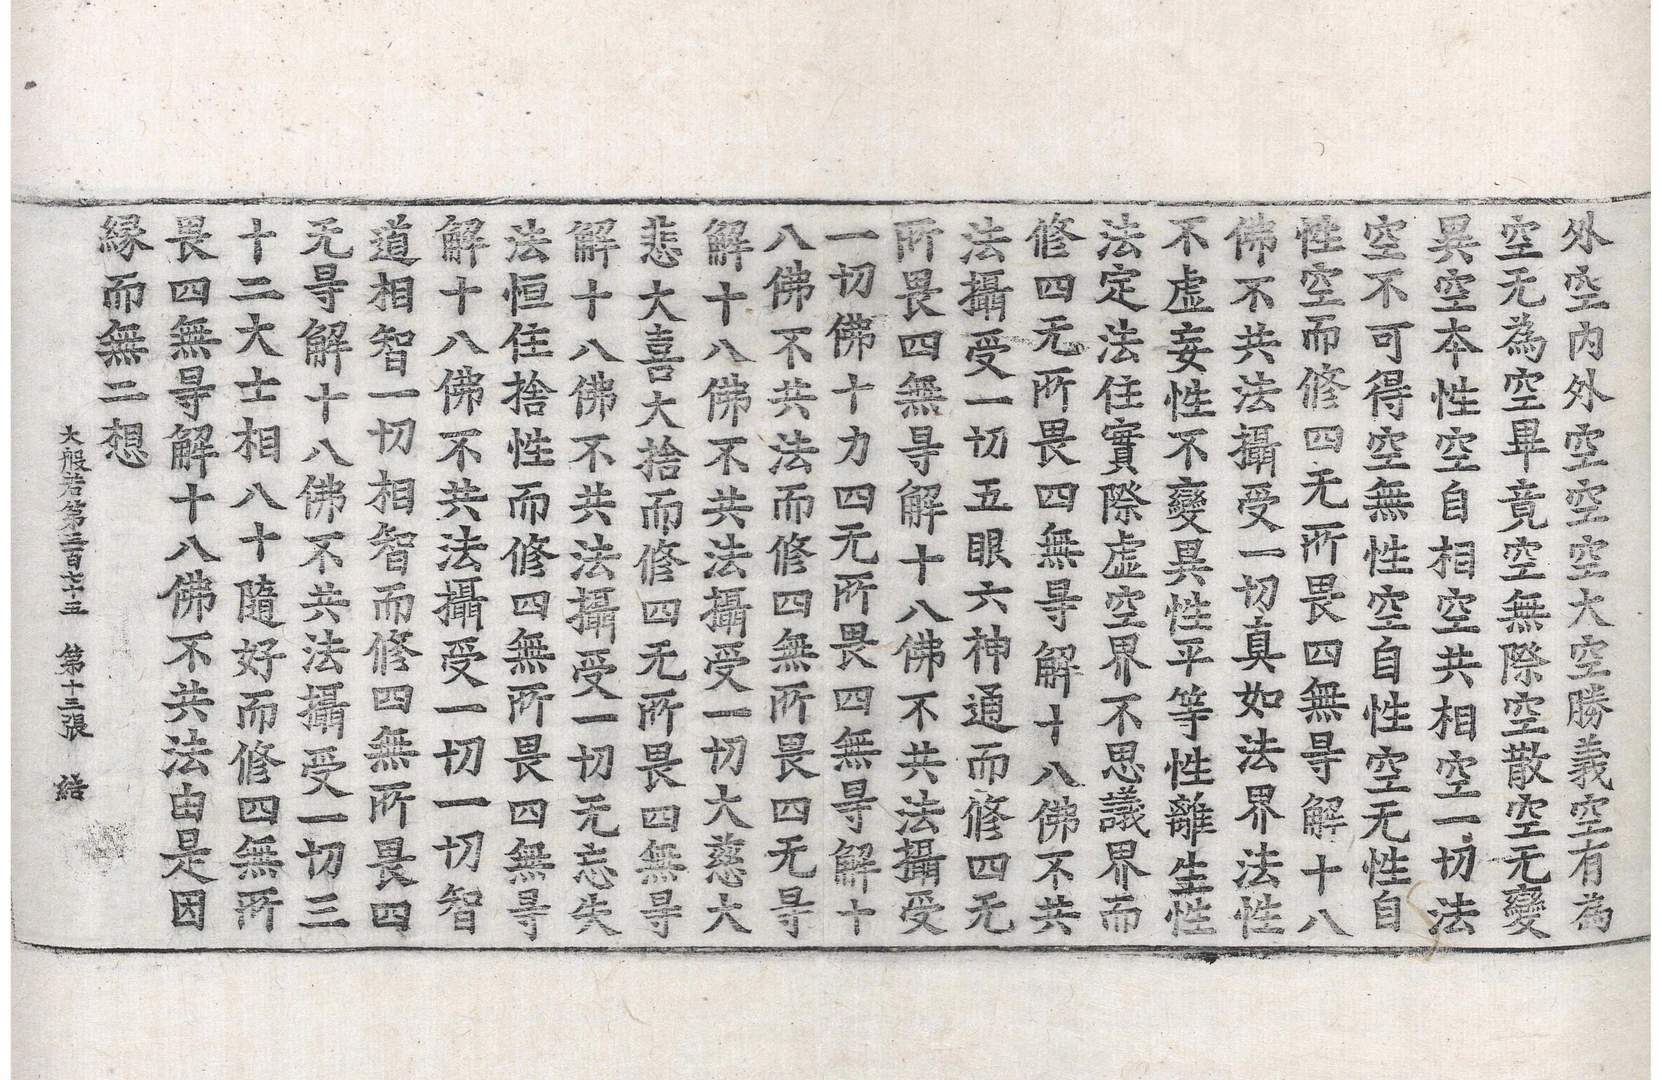 外空内外空空空大空勝義空有為
空无為空畢竟空無際空散空无變
異空本性空自相空共相空一切法
空不可得空無性空自性空无性自
性空而修四无所畏四無㝵解十八
佛不共法攝受一切真如法界法性
不虛妄性不變異性平等性離生性
法定法住實際虛空界不思議界而
修四无所畏四無㝵解十八佛不共
法攝受一切五眼六神通而修四无
所畏四無㝵解十八佛不共法攝受
一切佛十力四无所畏四無㝵解十
八佛不共法而修四無所畏四无㝵
解十八佛不共法攝受一切大慈大
悲大喜大捨而修四无所畏四無㝵
解十八佛不共法攝受一切无忘失
法恒住捨性而修四無所畏四無㝵
解十八佛不共法攝受一切一切智
道相智一切相智而修四無所畏四
无㝵解十八佛不共法攝受一切三
十二大士相八十隨好而修四無所
畏四無㝵解十八佛不共法由是因
緣而無二想
大般若第三百六十五　第十三張　結